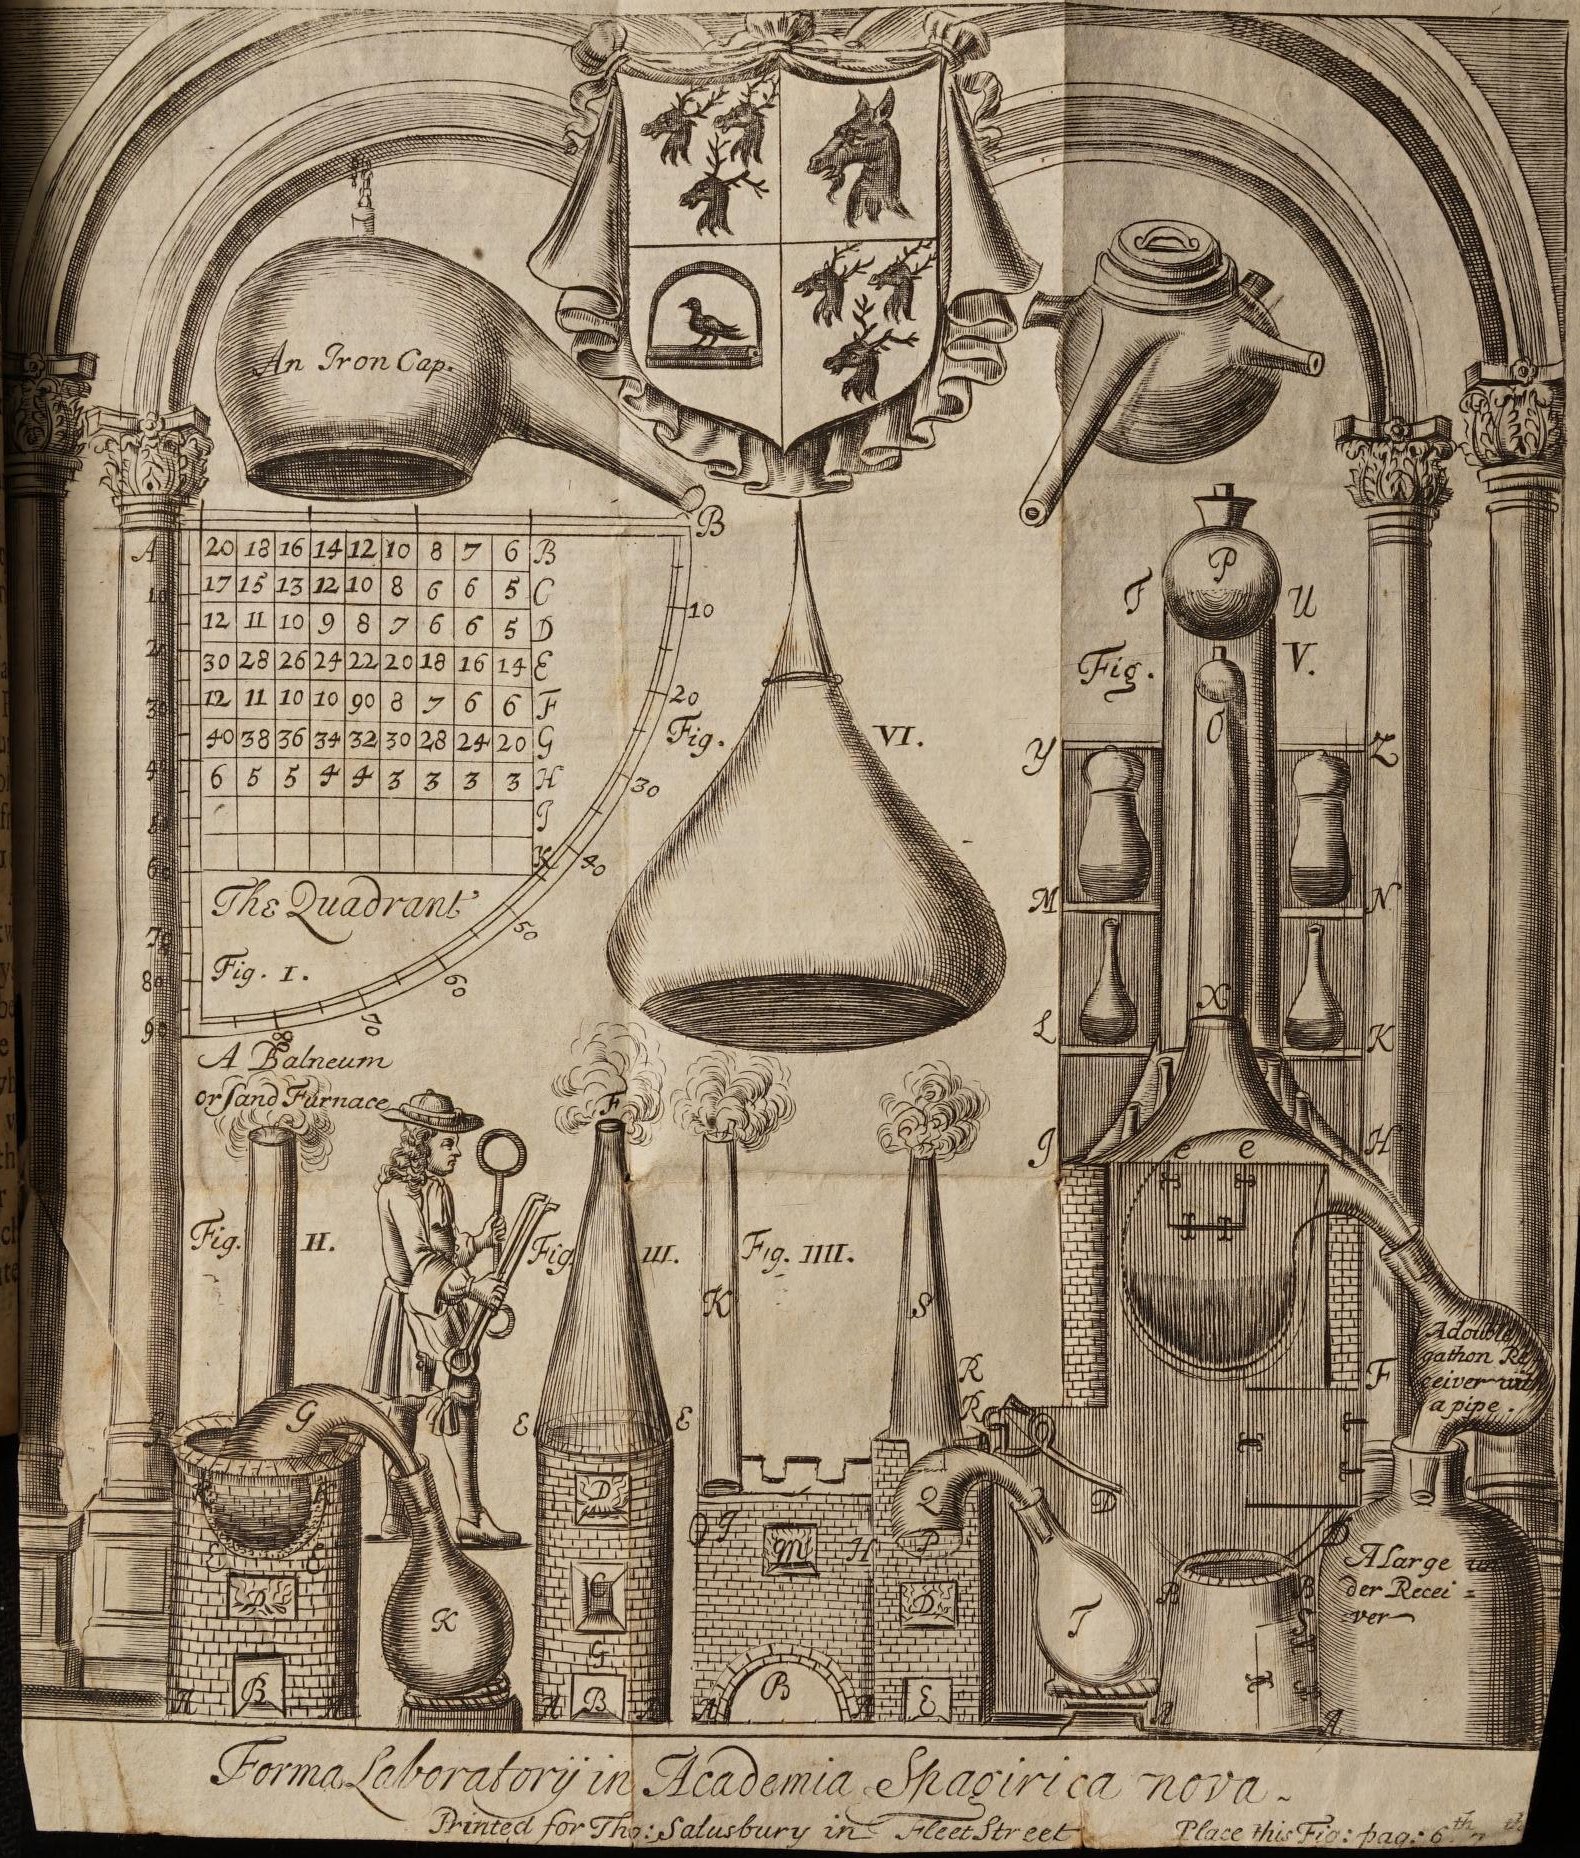 An Iron Cap.
B
A 20 18 16 14 12 10 8 7 6 B
17 15 13 12 10 8 6 6 5 C
12 11 10 9 8 7 6 6 5 D
30 28 26 24 22 20 18 16 14 E
12 11 10 10 90 8 7 6 6 F
40 38 36 34 32 30 28 24 20 G
6 5 5 4 4 3 3 3 3 H
I
K
10
20
30
40
50
60
70
80
The Quadrant
Fig. I.
70
80
90
Fig. VI.
P
F U
Fig. V.
O
Y Z
M N
X
L K
I H
e e
F
A double
gathon Re
ceiver with
a pipe.
A Balneum
or sand Furnace
Fig. II.
G
K
D
B
A A
Fig. III.
F
E E
D
C
G
B
A A
Fig. IIII.
K
S
R
R
I
M
H
Q
P
D
B
E
A A
T
D
B B
A A
A Large un
der Recei=
ver
Forma Laboratorÿ in Academia Spagirica nova.
Printed for Tho: Salusbury in Fleet Street
Place this Fig: pag: 6th